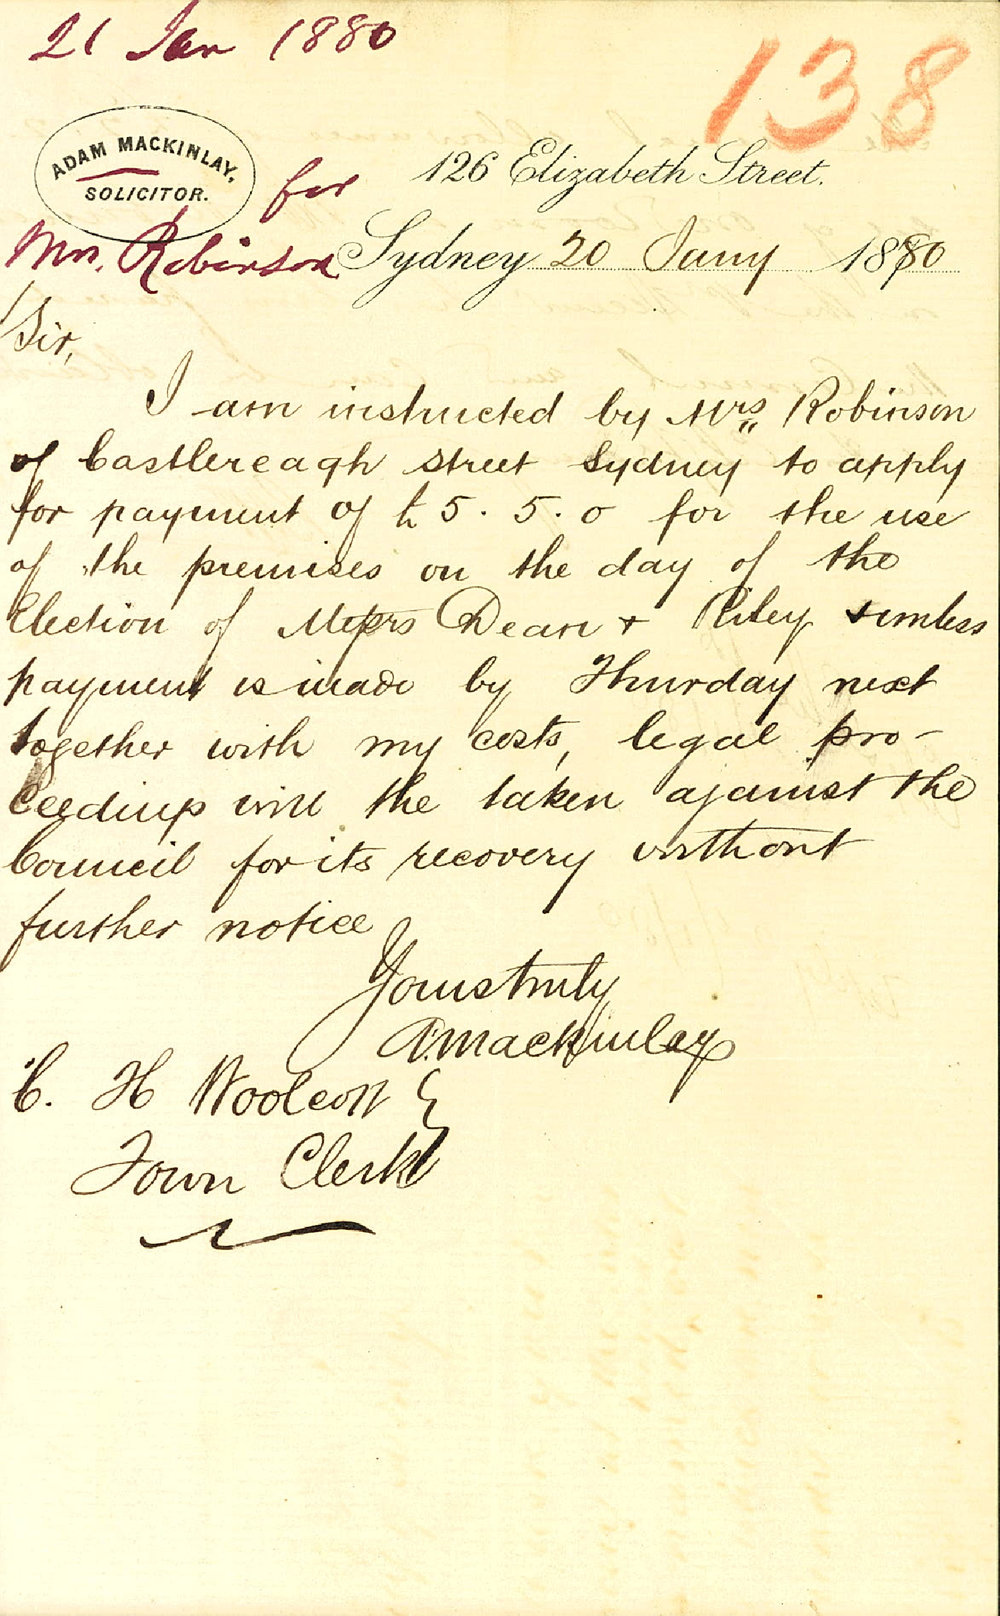 21 Jan 1880
138
ADAM MACKINLAY.
SOLICITOR.
for
126 Elizabeth Street.
Mrs. Robinson
Sydney 20 Jany 1880
Sir,
I am instructed by Mrs Robinson
of Castlereagh street Sydney to apply
for payment of £5.5.0 for the use
of the premises on the day of the
Election of Messrs Dean + Riley + unless
payment is made by Thursday next
together with my costs, legal pro-
ceedings will the taken against the
Council for its recovery without
further notice
Yours truly
A. Mackinlay
C. H Woolcott
Town Clerk